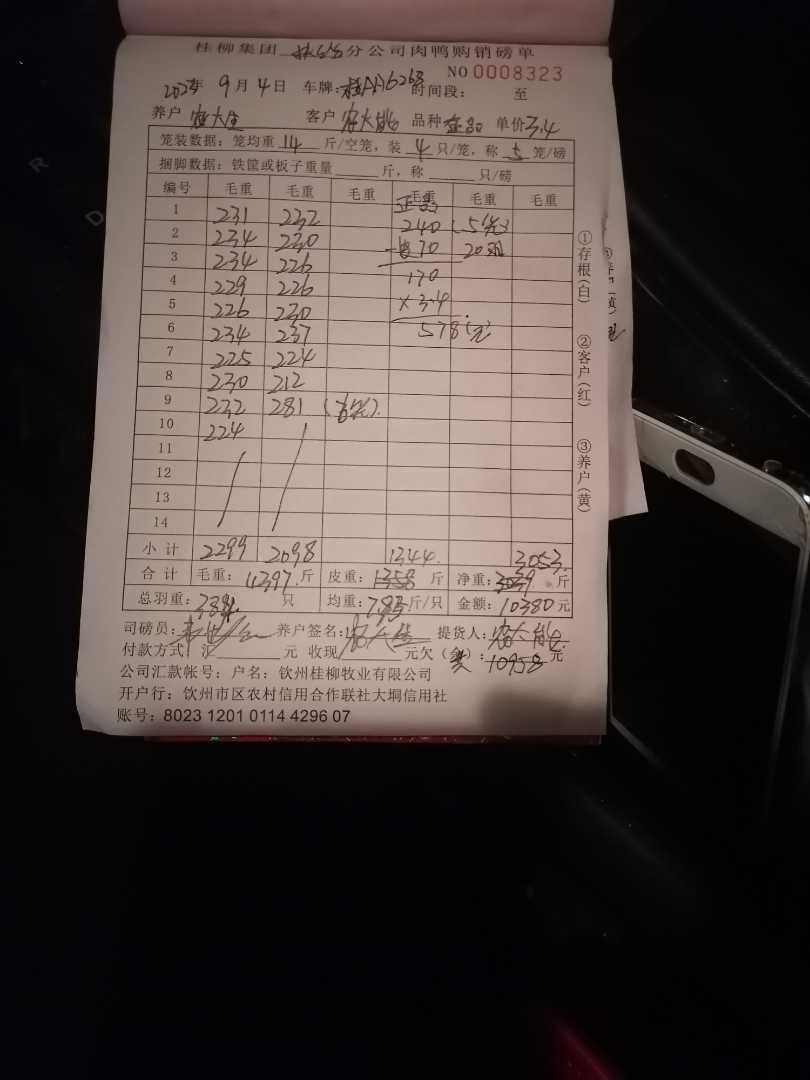 桂柳集团 分公司肉鸭购销磅单
NO 0008323
2025年 9月4日 车牌: 桂AA6268 时间段: 至
养户 农大生 客户 农大能 品种 正品 单价 3.4
笼装数据: 笼均重 14 斤/空笼, 装 4 只/笼, 称 5 笼/磅
捆脚数据: 铁筐或板子重量 斤, 称 只/磅
编号 毛重 毛重 毛重 毛重 毛重 毛重
1 231 232 240 (5笼)
2 234 230 70 20只
3 234 226 170
4 229 226 ×3.4
5 226 230 578(元)
6 234 237
7 225 224
8 230 212
9 232 281 (6笼).
10 224
11
12
13
14
小计 2299 2098 1344. 3053.
合计 毛重: 4397.斤 皮重: 1358 斤 净重: 3039 斤
总羽重: 384 只 均重: 斤/只 金额: 10380元
司磅员: 养户签名: 农大生 提货人: 农大能
付款方式: 汇 元 收现 元欠(余): 10958元
公司汇款帐号: 户名: 钦州桂柳牧业有限公司
开户行: 钦州市区农村信用合作联社大垌信用社
账号: 8023 1201 0114 4296 07
①存根(白) ②客户(红) ③养户(黄)